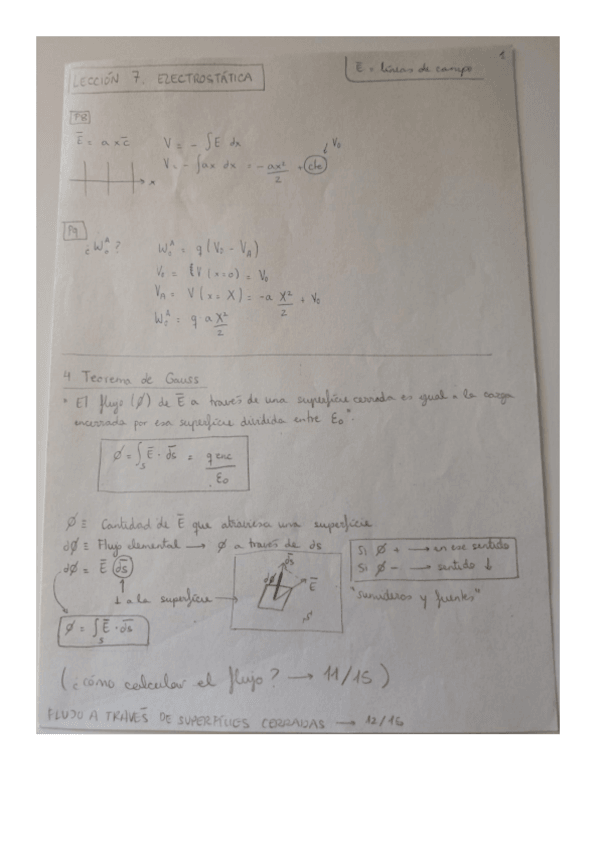 1
LECCIÓN 7. ELECTROSTÁTICA
E = líneas de campo
P8
E̅ = a x c̅
V = - ∫E dx
V = - ∫ax dx = - ax²/2 + cte
↓ V₀
x
P9
¿W₀ᴬ?
W₀ᴬ = q (V₀ - V_A)
V₀ = V (x=0) = V₀
V_A = V (x = X) = -a X²/2 + V₀
W₀ᴬ = q a X²/2
4 Teorema de Gauss
"El flujo (Ø) de E̅ a través de una superficie cerrada es igual a la carga
encerrada por esa superficie dividida entre ε₀".
Ø = ∫ₛ E̅ · d̅s̅ = q enc / ε₀
Ø ≡ Cantidad de E̅ que atraviesa una superficie
dØ ≡ Flujo elemental → Ø a través de ds
dØ = E̅ d̅s̅
↑
⊥ a la superficie →
d̅s̅
dØ
E̅
S
Si Ø + → en ese sentido
Si Ø - → sentido ↓
"sumideros y fuentes"
Ø = ∫ₛ E̅ · d̅s̅
(¿cómo calcular el flujo? → 11/15)
FLUJO A TRAVÉS DE SUPERFICIES CERRADAS → 12/16